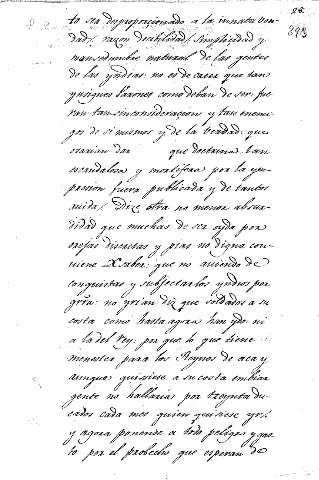 28.
293
to sea desproporcionado a la innata bon
dad, razon docilidad, simplicidad y
mansedumbre natural de las gentes
de las yndias: no es de creer que tan
ynsignes Varones como deban de ser; fue
ran tan sin consideracion y tan enemi
gos de si mismos y de la Verdad; que
osarian dar que doctrina tan
escandalosa y mortifera por la ym-
presion fuera publicada y de tantos
auida. Dize otra no menor absur-
didad que muchas de ser oyda por
orejas discretas y pias no digna con-
viene a saber: que no auiendo de
conquistas y subjectar los yndios por
gr̃ra: no yrian diz que soldados a su
costa como hasta agora han ydo: ni
a la del rey: por que lo que tiene
menester para los Reynos de aca y
aunque quisiese a su costa embiar
gente no hallaria por treynta du-
cados cada mes quien quisiese yr,
y agora ponense a todo peligro y gas-
to por el probecho que esperan de